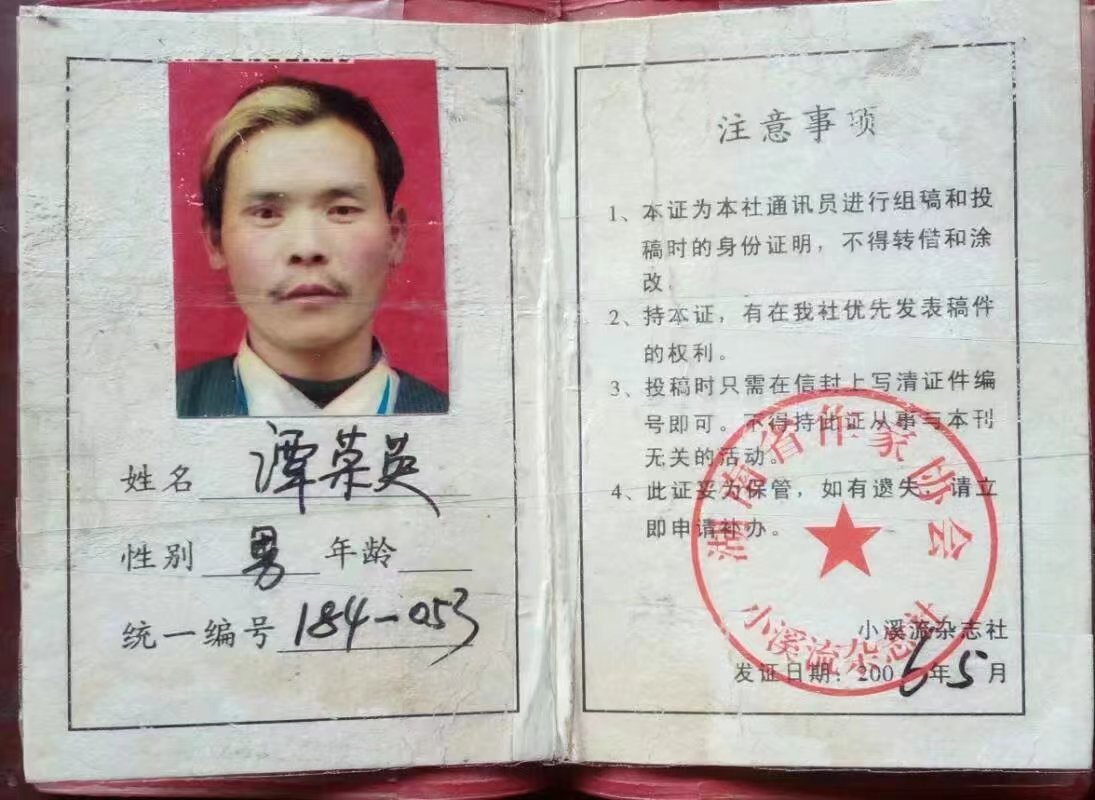 姓名 潭荣英
性别 男 年龄
统一编号 184-053
注意事项
1、本证为本社通讯员进行组稿和投
稿时的身份证明，不得转借和涂
改。
2、持本证，有在我社优先发表稿件
的权利。
3、投稿时只需在信封上写清证件编
号即可。不得持此证从事与本刊
无关的活动。
4、此证妥为保管，如有遗失，请立
即申请补办。
湖南省作家协会
小溪流杂志社
小溪流杂志社
发证日期：2006年5月